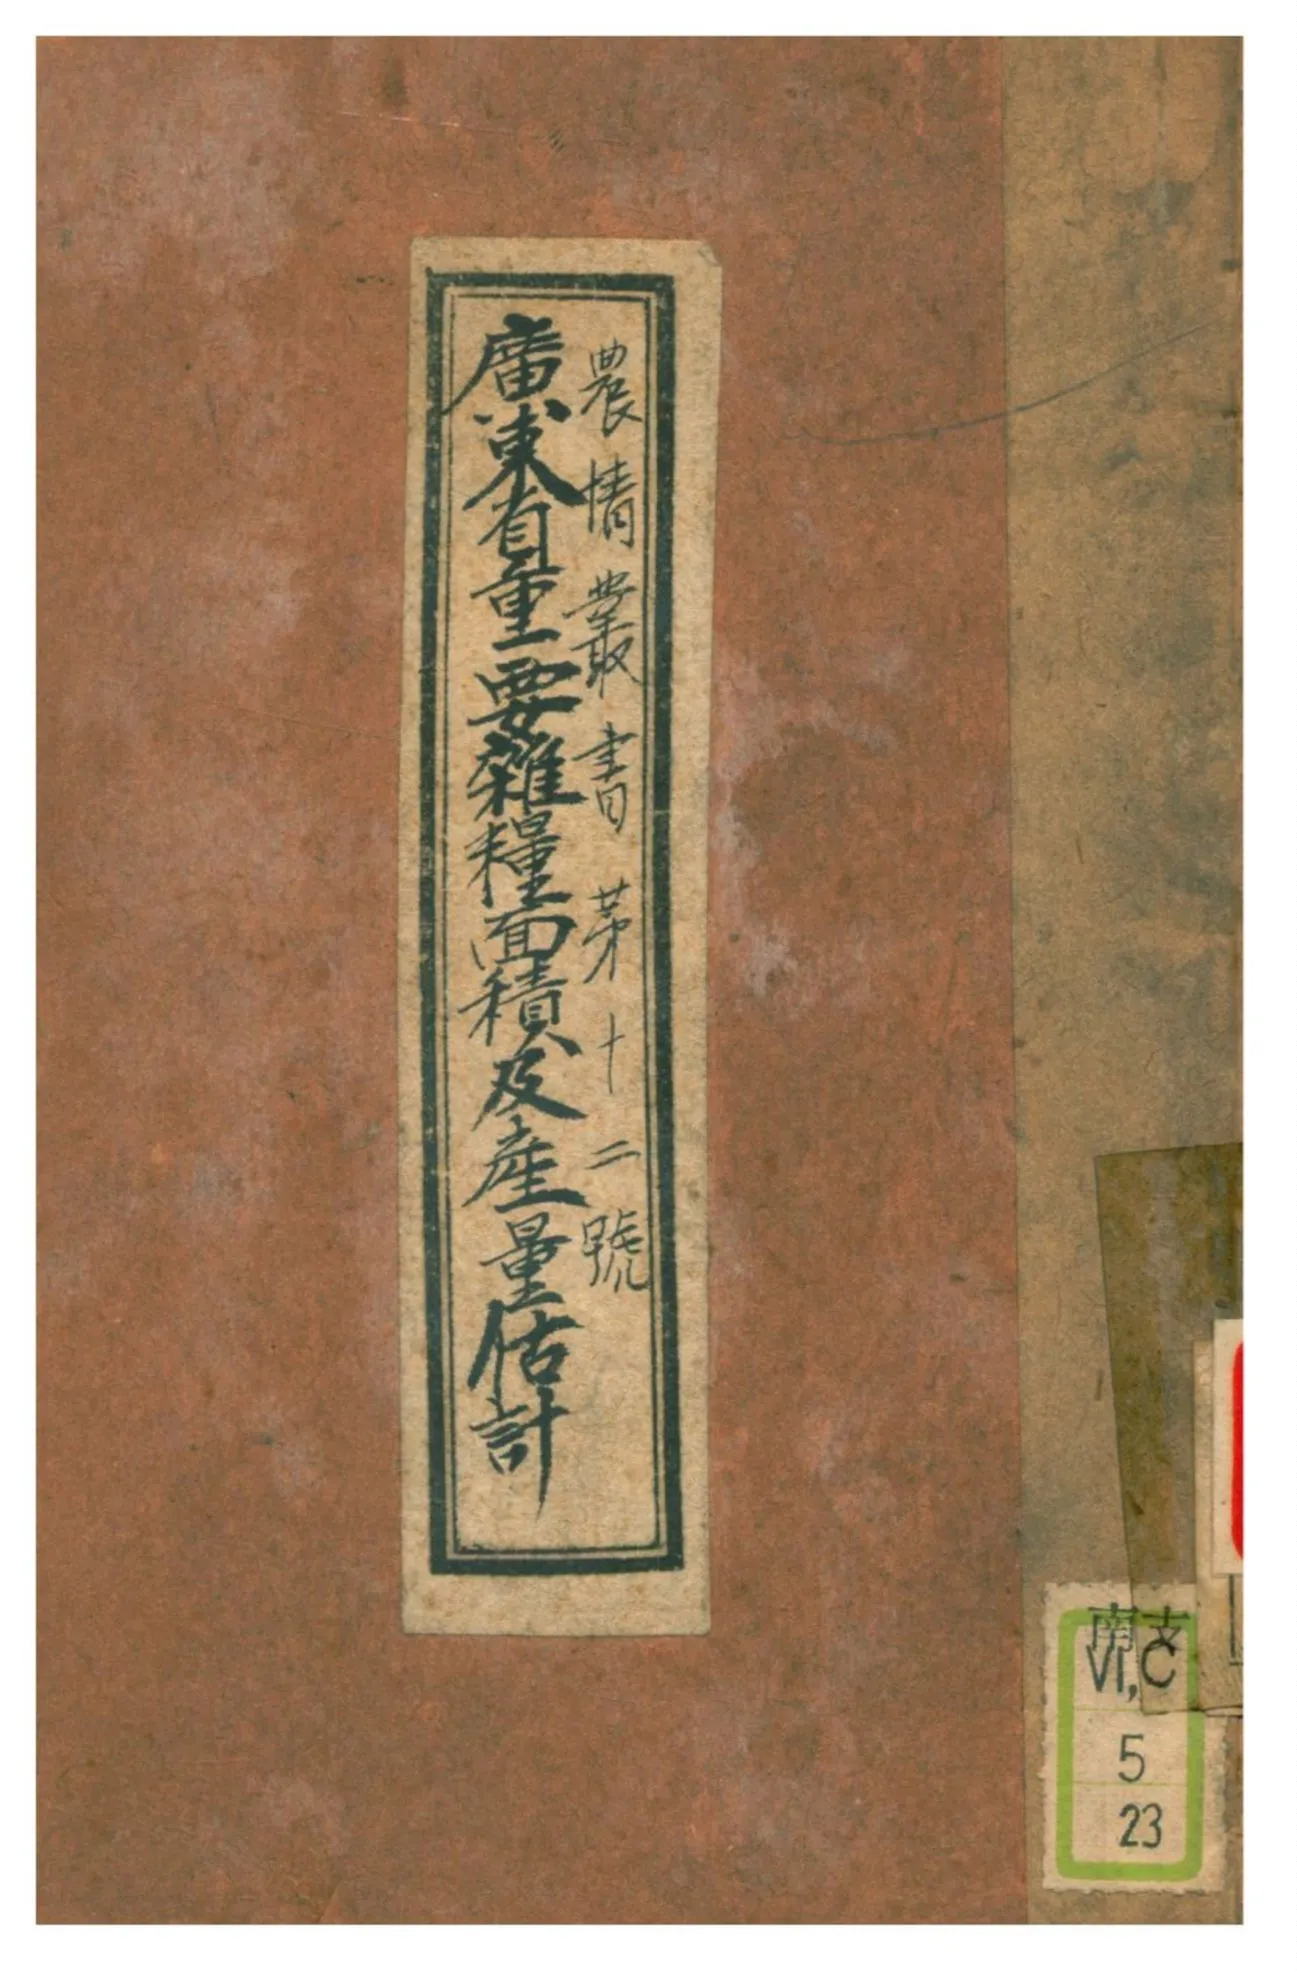 農情叢書第十二號
廣東省重要雜糧面積及產量估計
南支
VI,C
5
23